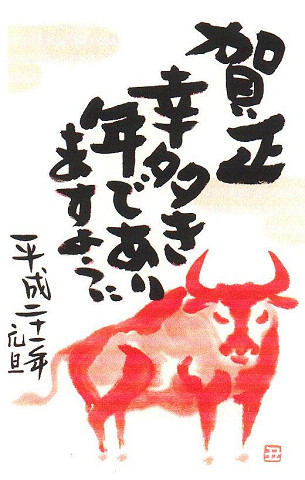 賀正
幸多き
年であり
ますように
平成二十一年
元旦
丑